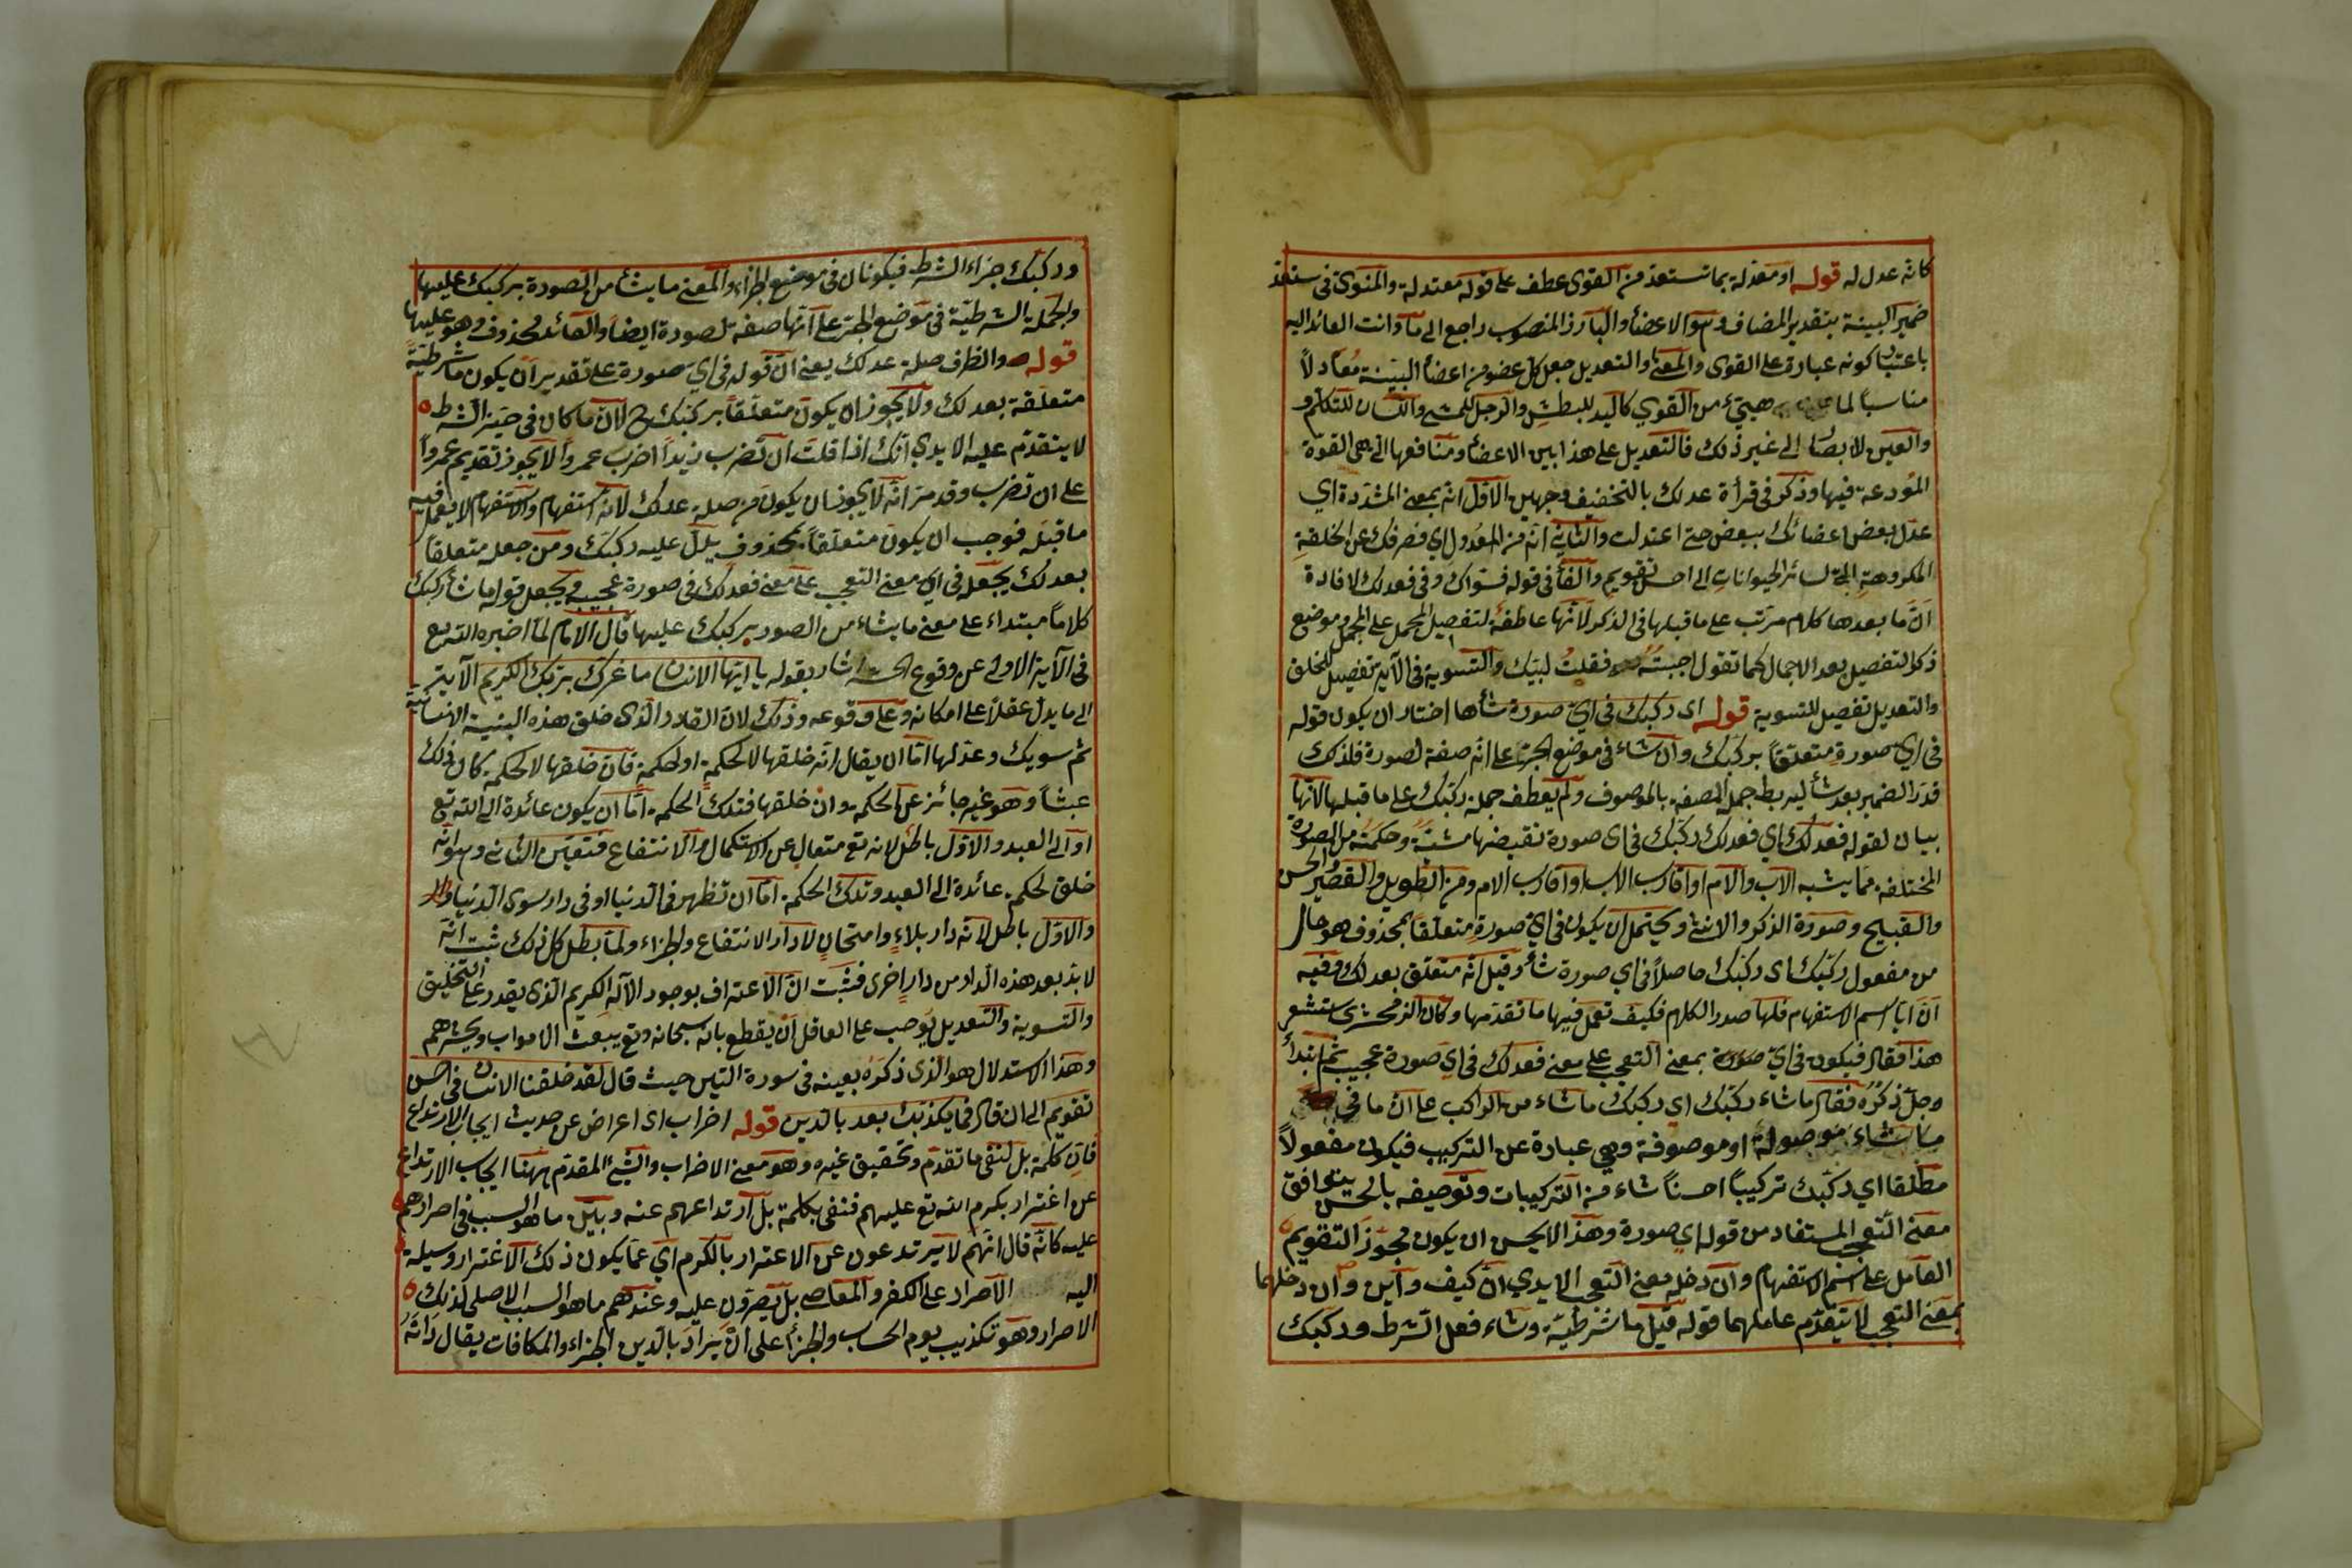 كانه عدل له قوله او معدلة بما تستعد من القوى عطف على قوله معتدلة والمنوى فى ستعد
ضمير البينة بتقدير المضاف وهو الاعضأ والبارز المنصوب راجع الى ما وانت العائد اليه
باعتبار كونه عبارة على القوى والمعنى والتعديل جعل كل عضو من اعضأ البينة معادلاً
مناسباً لما هيئ من القوي كاليد للبطش والرجل للمشے واللسان للتكلم و
والعين للابصار الى غير ذلك فالتعديل على هذا بين الاعضأ ومنافعها التى هى القوة
المودعة فيها وذكر فى قرأة عدلك بالتخفيف وجهين الاول انه بمعنى المشددة اي
عدل بعض اعضائك ببعض حتى اعتدلت والثاني انه من العدول اي فصرفك عن الخلقة
المكروهة التى لسائر الحيوانات الى احسن تقويم والفأ فى قوله فسواك وفى فعدلك لافادة
ان ما بعدها كلام مرتب على ما قبلها فى الذكر لانها عاطفة لتفصيل المجمل على المجمل وموضع
ذكر التفصيل بعد الاجمال كما تقول اجبته فقلت لبيك والتسوية فى الآية تفصيل للخلق
والتعديل تفصيل للتسوية قوله اى ركبك فى اي صورة شأها اختار ان يكون قوله
فى اي صورة متعلقاً بركبك وان شاء فى موضع الجر على انه صفة لصورة فلذلك
قدر الضمير بعد شأ ليربط جملة الصفة بالموصوف ولم يعطف جملة ركبك على ما قبلها لانها
بيان لقوله فعدلك اي فعدلك ركبك فى اى صورة تقتضيها مشيته وحكمته من الصورة
المختلفة مما يشبه الاب والام او اقارب الاب او اقارب الام ومن الطويل والقصير والحسن
والقبيح وصورة الذكر والانثى ويحتمل ان يكون فى اي صورة متعلقاً بمحذوف هو حال
من مفعول ركبك اى ركبك حاصلاً فى اي صورة شأ وقيل انه متعلق بعدلك وفيه
ان ايا اسم الاستفهام فلها صدر الكلام فكيف تعمل فيها ما تقدمها وكان الزمخشرى ستشعر
هذا فقال فيكون فى اي صورة بمعنى التعجب على معنى فعدلك فى اي صورة عجيب ثم ابتدأ
وجل ذكره فقال ما شاء ركبك اي ركبك ما شاء من التراكب على ان ما فى
ما شاء موصولة او موصوفة وهي عبارة عن التركيب فيكون مفعولاً
مطلقا اي ركبك تركيباً احسناً شاء من التركيبات وتوصيفه بالحسن يوافق
معنى التعجب المستفاد من قوله اي صورة وهذا لا يحسن ان يكون مجوز التقويم
العامل على اسم الاستفهام وان دخله معنى التعجب الا يدي ان كيف وأين وان دخلهما
بمعنى التعجب لا يتقدم عاملهما قوله قيل ما شرطية وشاء فعل الشرط وركبك
وركبك جزاء الشرط فيكونان فى موضع الجزاء والمعنى ما يشأ من الصورة يركبك عليها
والجملة الشرطية فى موضع الجر على انها صفة لصورة ايضاً والعائد محذوف وهو عليها
قوله والظرف صلة عدلك يعنى ان قوله فى اي صورة على تقدير ان يكون ما شرطية
متعلقة بعدلك ولا يجوز ان يكون متعلقاً بركبك ح لان ما كان فى حيز الشرط
لا يتقدم عليه الا يدي انك اذا قلت ان تضرب زيداً اضرب عمرواً لا يجوز تقديم عمرواً
على ان تضرب وقد مر انه لا يجوز ان يكون من صلة عدلك لانه استفهام والاستفهام لا يعمل فيه
ما قبله فوجب ان يكون متعلقاً بمحذوف يدل عليه ركبك ومن جعله متعلقاً
بعدلك يجعله فى اي معنى التعجب على معنى فعدلك فى صورة عجيبة ويجعل قوله ما شأ ركبك
كلاماً مبتداء على معنى ما يشاء من الصور يركبك عليها قال الامام لما اخبر الله تع
فى الآية الاولى عن وقوع الحشر اشار بقوله يا ايها الانسان ما غرك بربك الكريم الآية
الى ما يدل عقلاً على امكانه وعلى وقوعه وذلك لان القادر الذى خلق هذه البنية الانسانية
ثم سويك وعدلها اما ان يقال انه خلقها لا لحكمة او لحكمة فان خلقها لا لحكمة كان ذلك
عبثاً وهو غير جائز عن الحكمة وان خلقها فتلك الحكمة اما ان يكون عائدة الى الله تع
او الى العبد والاول باطل لانه تع متعال عن الاستكمال والانتفاع فتعين الثانى وهو انه
خلق لحكمة عائدة الى العبد وتلك الحكمة اما ان تظهر فى الدنيا او فى دار سوى الدنيا
والاول باطل لانه دار بلاء وامتحان لا دار الانتفاع والجزاء ولما بطل كل ذلك ثبت انه
لا بد بعد هذه الدار من دار اخرى فثبت ان الاعتراف بوجود الاله الكريم الذى يقدر على التخليق
والتسوية والتعديل يوجب على العاقل ان يقطع بانه سبحانه وتع يبعث الاموات ويحشرهم
وهذا الاستدلال هو الذى ذكره بعينه فى سورة التين حيث قال لقد خلقنا الانسان فى احسن
تقويم الى ان قال فما يكذبك بعد بالدين قوله اضراب اى اعراض عن حديث ايجاب الارتداع
فان كلمة بل لنفى ما تقدم وتحقيق غيره وهو معنى الاضراب والشئ المقدم ههنا ايجاب الارتداع
عن اغترار بكرم الله تع عليهم فنفى بكلمة بل ارتداعهم عنه وبين ما هو السبب فى اصرارهم
عليه كانه قال انهم لا يرتدعون عن الاغترار بالكرم اي عما يكون ذلك الاغترار وسيلة
اليه الاصرار على الكفر والمعاصے بل يصرون عليه وعندهم ما هو السبب الاصلى لذلك
الاصرار وهو تكذيب يوم الحساب والجزأ على ان يراد بالدين الجزاء والمكافات يقال دانه